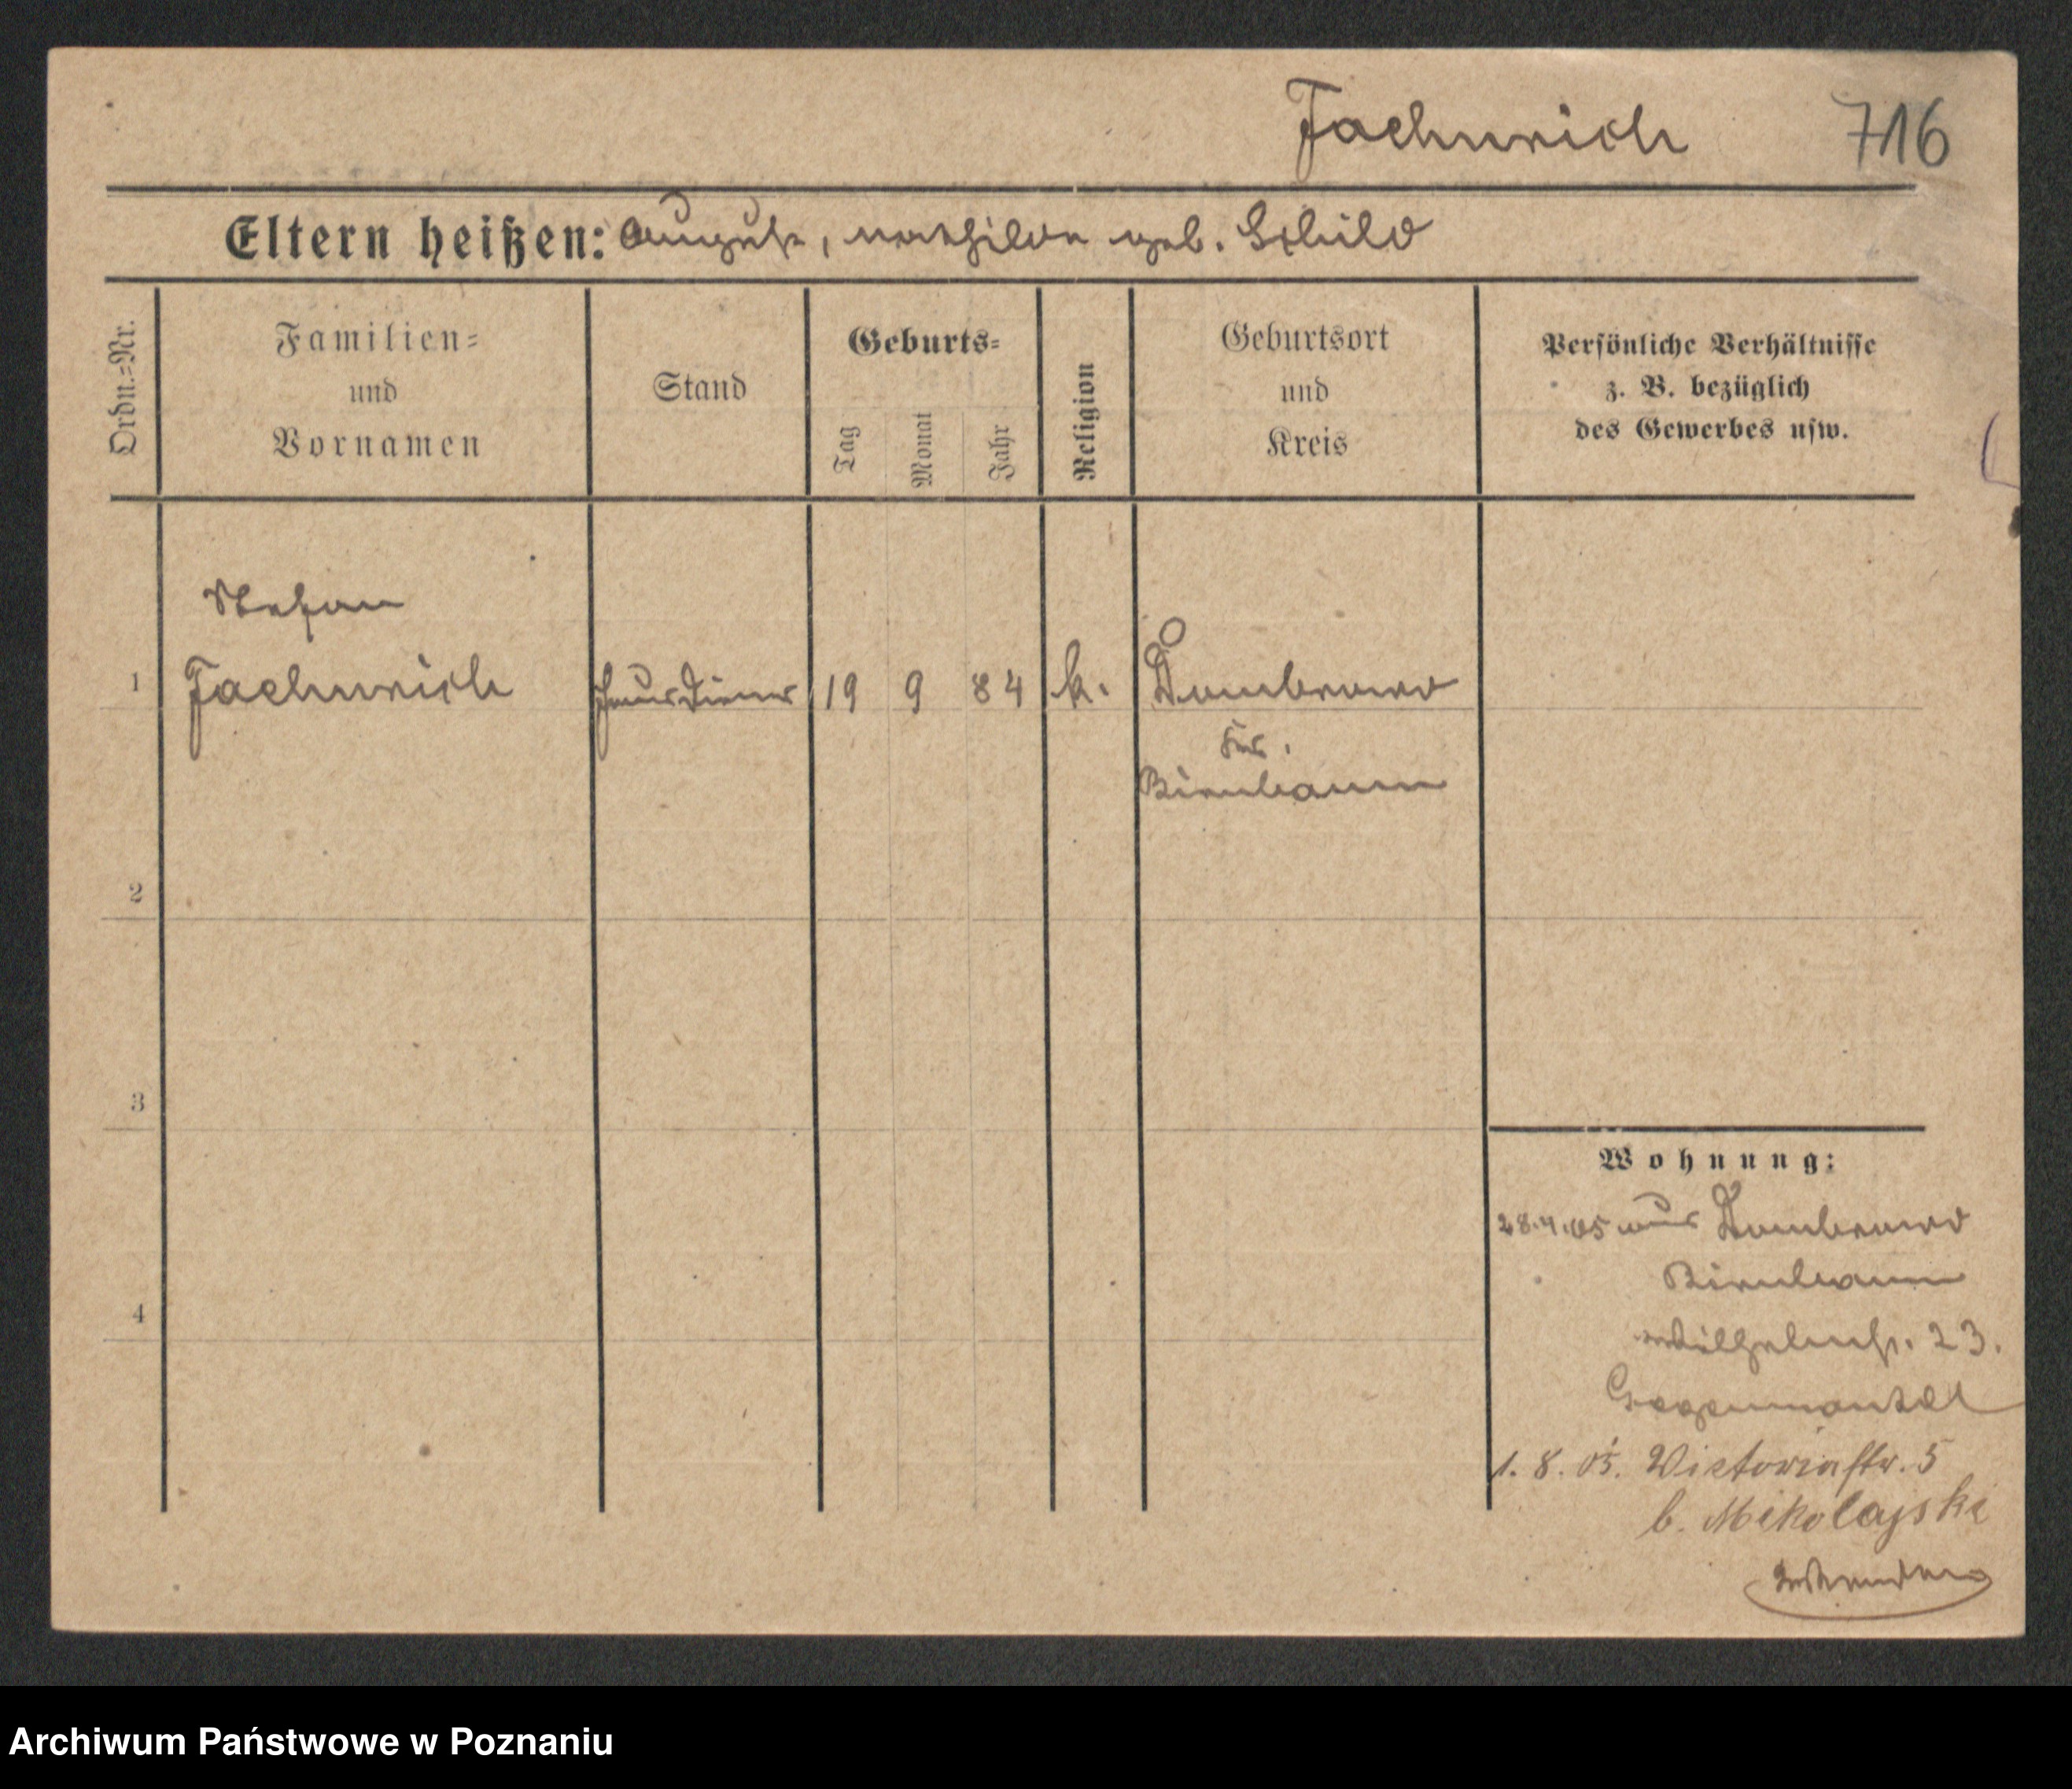 Fachurich 716
Eltern heißen: August, Mathilde geb. Schild
Ordn.=Nr.
Familien=
und
Vornamen
Stand
Geburts=
Tag
Monat
Jahr
Religion
Geburtsort
und
Kreis
Persönliche Verhältnisse
z. B. bezüglich
des Gewerbes usw.
Stefan
1 Fachurich Hausdiener 19 9 84 k. Dombrowo
Kr.
Birnbaum
2
3
4
Wohnung:
28.4.05 aus Dombrowo
Birnbaum
Wilhelmstr. 23.
1. 8. 05. Victoriastr. 5
b. Mikolajski
Archiwum Państwowe w Poznaniu